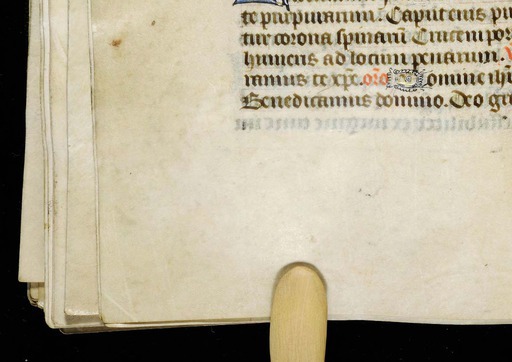 te purpuratum. Caput eius pu
tur corona spinarū Crucem por
humeris ad locum penarum. V
ramus te xp̄e. or̄o Domine ihū
Benedicamus domino. Deo gr